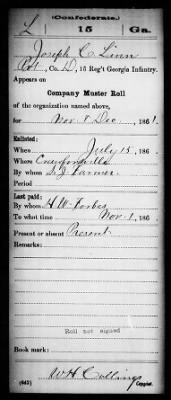 (Confederate.)
L 15 Ga.
Joseph C. Linn
Co. D, 15 Reg't Georgia Infantry.
Appears on
Company Muster Roll
of the organization named above,
for Nov & Dec, 1861.
Enlisted:
When July 15, 186
Where Crawfordville
By whom S. J. Farmer
Period
Last paid:
By whom H. W. Forbes
To what time Nov. 1, 186
Present or absent Present
Remarks:
Roll not signed
Book mark:
W H Collings
(642) Copyist.